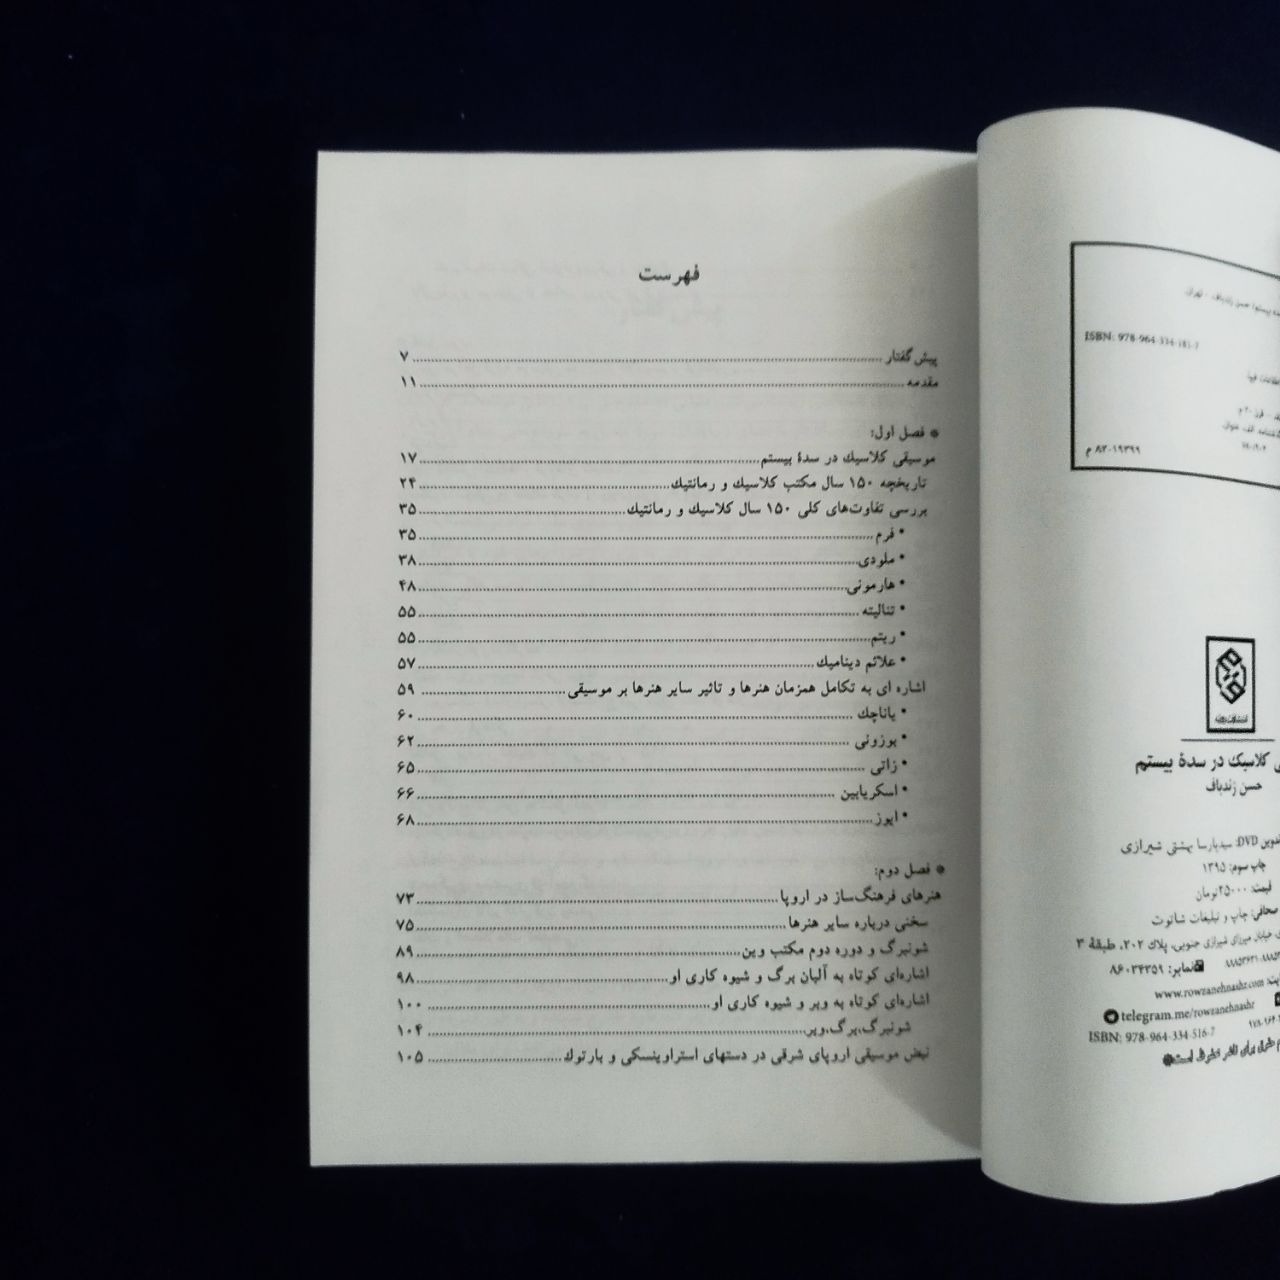 فهرست
پیش گفتار ........ ۷
مقدمه ........ ۱۱
* فصل اول:
موسیقی کلاسیك در سدهٔ بیستم ........ ۱۷
تاریخچه ۱۵۰ سال مکتب کلاسیك و رمانتیك ........ ۲۴
بررسی تفاوت‌های کلی ۱۵۰ سال کلاسیك و رمانتیك ........ ۳۵
• فرم ........ ۳۵
• ملودی ........ ۳۸
• هارمونی ........ ۴۸
• تنالیته ........ ۵۵
• ریتم ........ ۵۵
• علائم دینامیك ........ ۵۷
اشاره ای به تکامل همزمان هنرها و تاثیر سایر هنرها بر موسیقی ........ ۵۹
• یاناچك ........ ۶۰
• بوزونی ........ ۶۲
• زاتی ........ ۶۵
• اسکریابین ........ ۶۶
• ایوز ........ ۶۸
* فصل دوم:
هنرهای فرهنگ‌ساز در اروپا ........ ۷۳
سخنی درباره سایر هنرها ........ ۷۵
شونبرگ و دوره دوم مکتب وین ........ ۸۹
اشاره‌ای کوتاه به آلبان برگ و شیوه کاری او ........ ۹۸
اشاره‌ای کوتاه به وبر و شیوه کاری او ........ ۱۰۰
شونبرگ،برگ،وبر ........ ۱۰۴
نبض موسیقی اروپای شرقی در دستهای استراوینسکی و بارتوك ........ ۱۰۵
حسن زندباف. - تهران
ISBN: 978-964-334-
م ۸۳-۱۹۳۹۹
کلاسیك در سدهٔ بیستم
حسن زندباف
تدوین DVD: سیدپارسا بهشتی شیرازی
چاپ سوم: ۱۳۹۵
قیمت: ۲۵۰۰۰ تومان
صحافی: چاپ و تبلیغات شاتوت
خیابان میرزای شیرازی جنوبی، پلاك ۲۰۲، طبقهٔ ۳
نمابر: ۸۶۰۳۴۳۵۹
www.rowzanehnashr.com
telegram.me/rowzanehnashr
ISBN: 978-964-334-516-7
برای ناشر محفوظ است